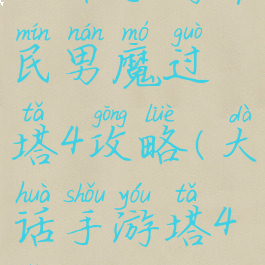 mín nán mó guò
民男魔过
tǎ gōng lüè dà
塔4攻略(大
huà shǒu yóu tǎ
话手游塔4